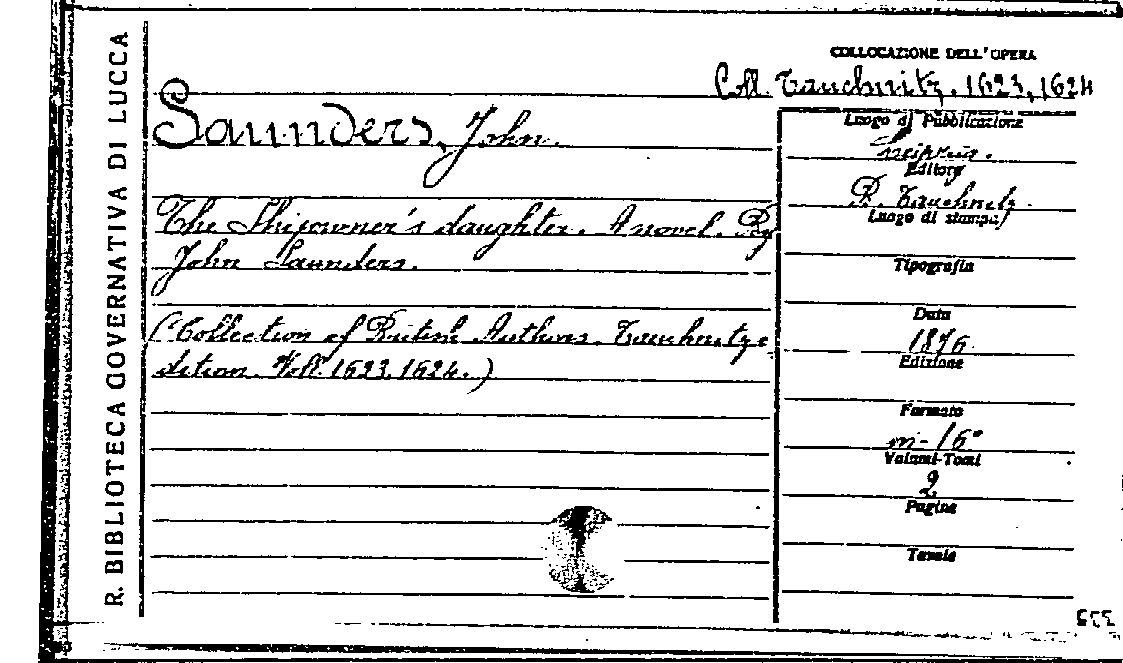 R. BIBLIOTECA GOVERNATIVA DI LUCCA
COLLOCAZIONE DELL'OPERA
Coll. Tauchnitz. 1623, 1624
Saunders, John.
The Shipowner's daughter. A novel. By
John Saunders.
(Collection of British Authors. Tauchnitz e
dition. Voll. 1623. 1624.)
Luogo di Pubblicazione
Leipzig.
Editore
B. Tauchnitz.
Luogo di stampa
Tipografia
Data
1876.
Edizione
Formato
in-16°
Volumi-Tomi
2
Pagine
Tavole